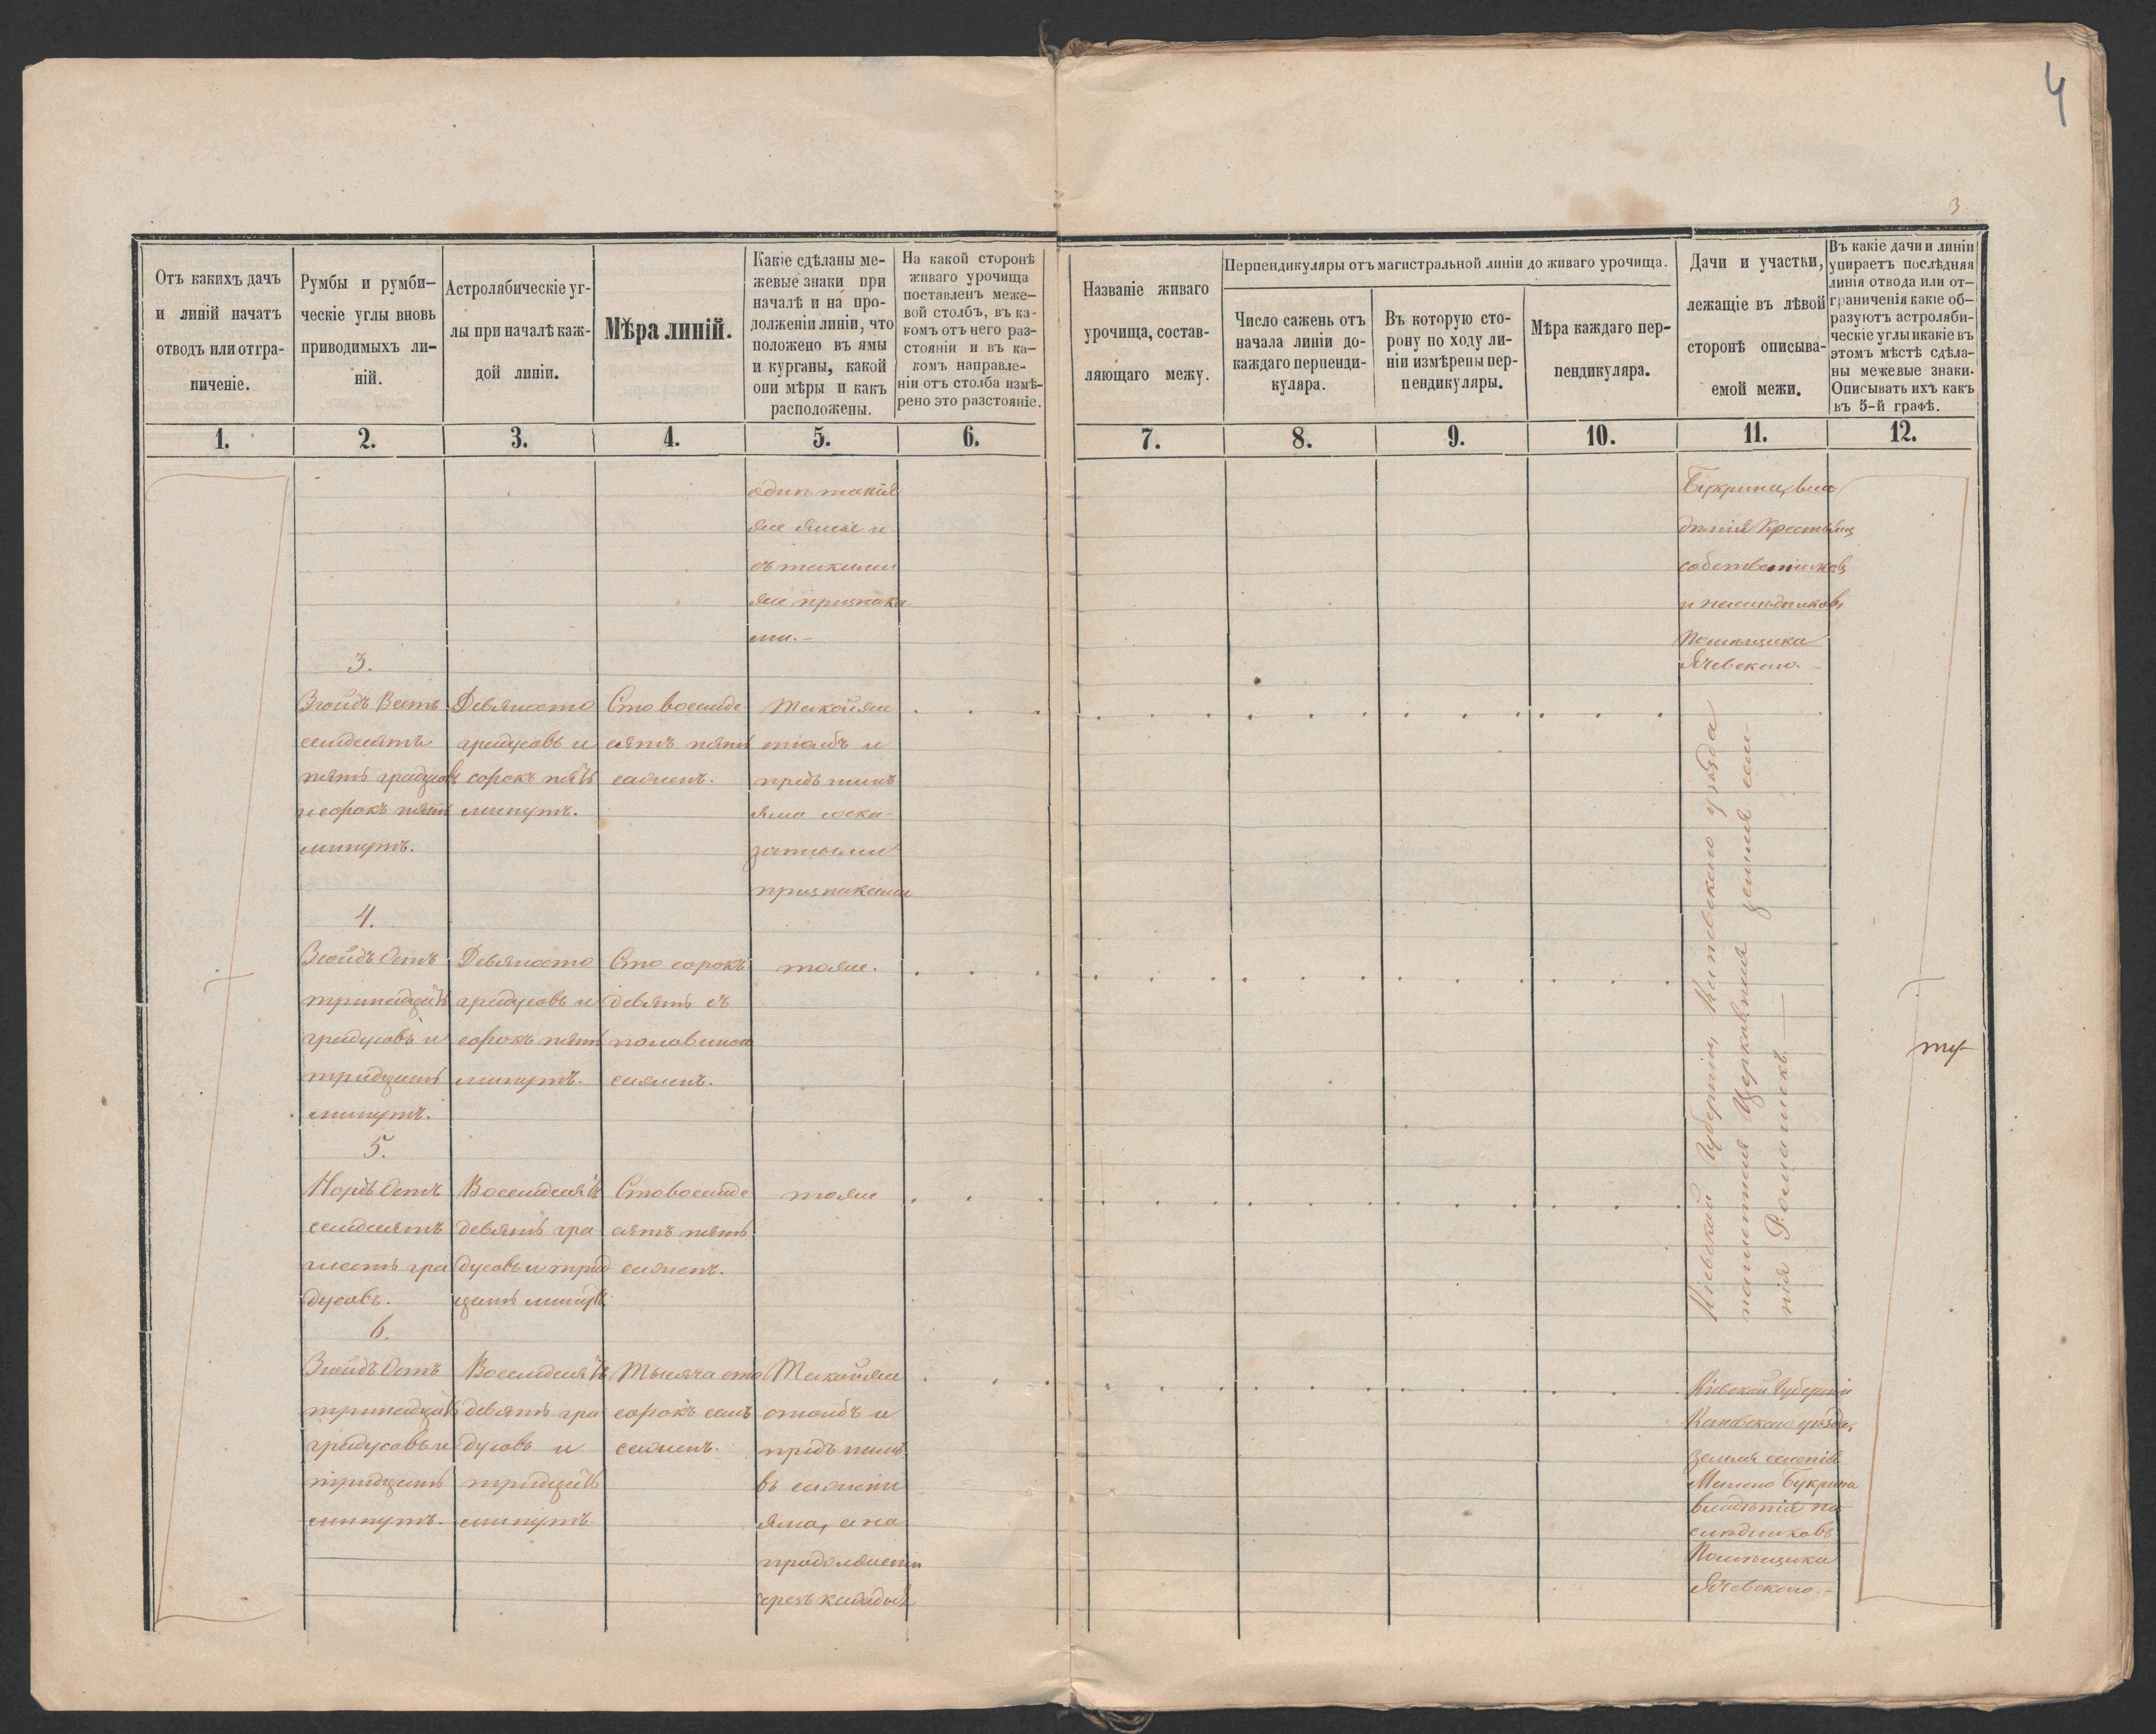 4
3
Отъ какихъ дачъ
и линій начатъ
отводъ или отгра-
ниченіе.
Румбы и румби-
ческіе углы вновь
приводимыхъ ли-
ній.
Астролябическіе уг-
лы при началѣ каж-
дой линіи.
Мѣра линій.
Какіе сдѣланы ме-
жевые знаки при
началѣ и на про-
долженіи линіи, что
положено въ ямы
и курганы, какой
они мѣры и какъ
расположены.
На какой сторонѣ
живаго урочища
поставленъ меже-
вой столбъ, въ ка-
комъ отъ него раз-
стояніи и въ ка-
комъ направле-
ніи отъ столба измѣ-
рено это разстояніе.
Названіе живаго
урочища, состав-
ляющаго межу.
Перпендикуляры отъ магистральной линіи до живаго урочища.
Число сажень отъ
начала линіи до-
каждаго перпенди-
куляра.
Въ которую сто-
рону по ходу ли-
ніи измѣрены пер-
пендикуляры.
Мѣра каждаго пер-
пендикуляра.
Дачи и участки,
лежащіе въ лѣвой
сторонѣ описыва-
емой межи.
Въ какіе дачи и линіи
упираетъ послѣдняя
линія отвода или от-
граниченія какіе об-
разуютъ астроляби-
ческіе углы и какіе въ
этомъ мѣстѣ сдѣла-
ны межевые знаки.
Описывать ихъ какъ
въ 5-й графѣ.
1.
2.
3.
4.
5.
6.
7.
8.
9.
10.
11.
12.
такія
же ямы и
съ такими
же признака-
ми.-
Букрина, вла
дѣнія Крестьянъ
собственниковъ
и наслѣдниковъ
Помѣщика
Ячевскаго.-
3.
Зюйдъ Вестъ
семдесятъ
пять градусовъ
и сорокъ пять
минутъ.
Девяносто
градусовъ и
сорокъ пять
минутъ.
Сто восемде
сятъ пять
саженъ.
Такой же
столбъ и
предъ нимъ
яма соска-
занными
признаками
4.
Зюйдъ Остъ
тринадцать
градусовъ и
тридцать
минутъ.
Девяносто
градусовъ и
сорокъ пять
минутъ.
Сто сорокъ
девять съ
половиною
саженъ.
тоже.
5.
Нордъ Остъ
семдесятъ
шесть гра
дусовъ.
Восемдесятъ
девять гра-
дусовъ и трид
цать минутъ
Сто восемде
сятъ пять
саженъ.
тоже
Кіевской Губерніи, Каневскаго уѣзда
Церковная земля селе-
нія Ромашекъ.
6.
Зюйдъ Остъ
тринадцать
градусовъ и
тридцать
минутъ.
Восемдесятъ
девять гра
дусовъ и
тридцать
минутъ
Тысяча сто
сорокъ семь
саженъ.
Такой же
столбъ и
предъ нимъ
въ сажени
яма, а на
продолженіи
чрезъ каждыя
Кіевской Губерніи
Каневскаго уѣзда,
земля селенія
Малаго Букрина
владѣнія на
слѣдниковъ
Помѣщика
Ячевскаго.-